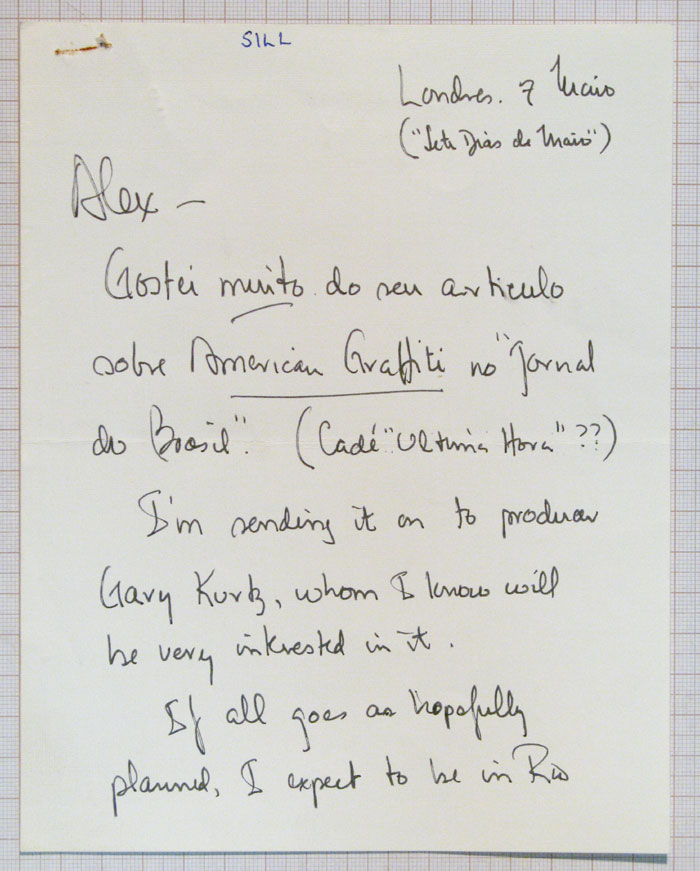 SILL
Londres. 7 Maio
("Sete Dias de Maio")
Alex —
Gostei muito do seu articulo
sobre American Graffiti no "Jornal
do Brasil". (Cadé "Ultima Hora"??)
I'm sending it on to producer
Gary Kurtz, whom I know will
be very interested in it.
If all goes as hopefully
planned, I expect to be in Rio